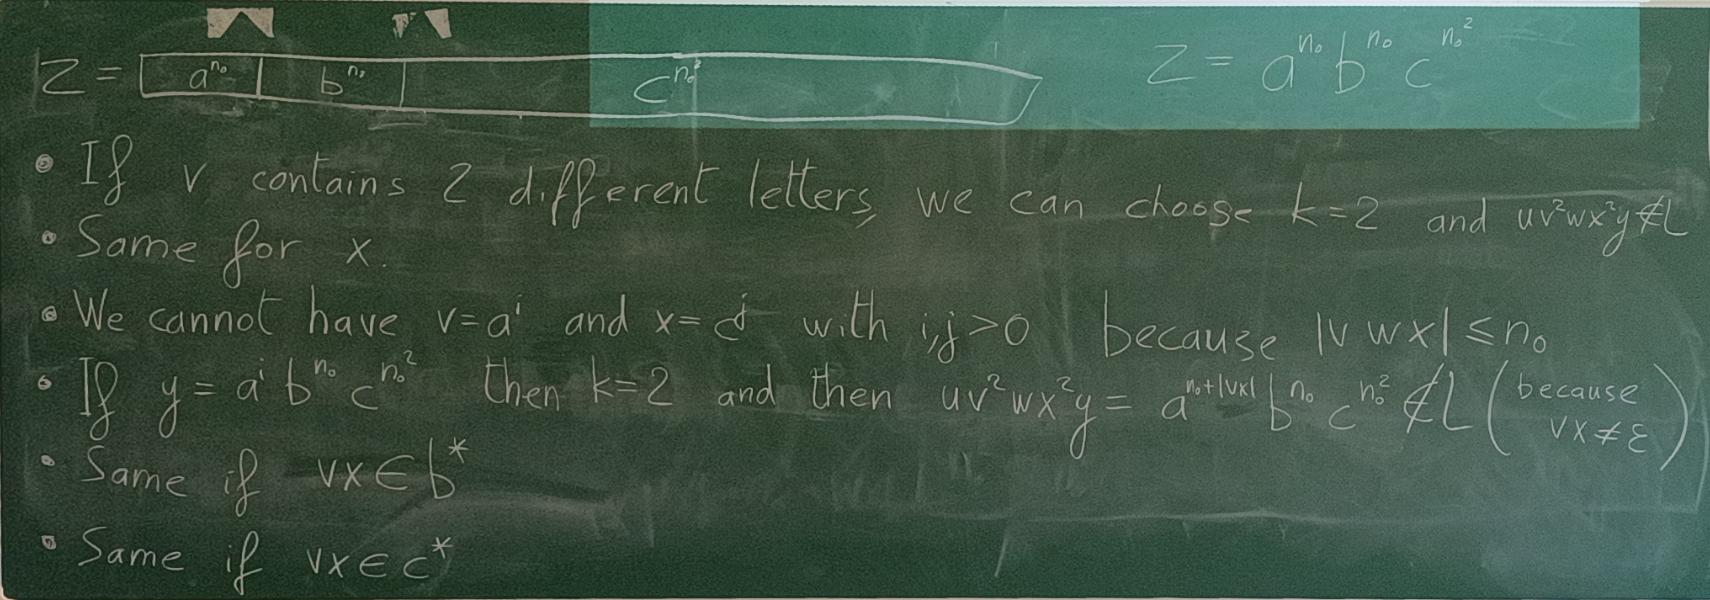 Z = a^n₀ b^n₀ c^n₀² Z = a^n₀ b^n₀ c^n₀²
• If v contains 2 different letters, we can choose k=2 and uv²wx²y ∉ L
• Same for x.
• We cannot have v=a^i and x=c^j with i,j>0 because |vwx| ≤ n₀
• If y = a^i b^n₀ c^n₀² then k=2 and then uv²wx²y = a^n₀+|vx| b^n₀ c^n₀² ∉ L (because vx≠ε)
• Same if vx ∈ b*
• Same if vx ∈ c*